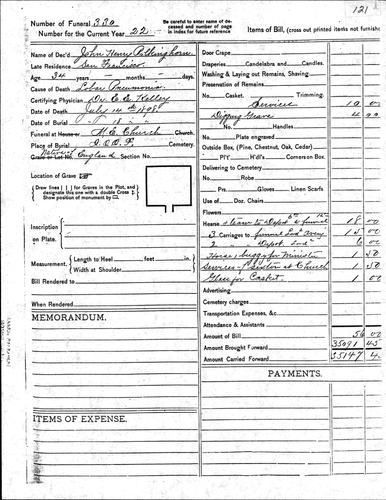 121
Number of Funeral 330
Number for the Current Year 22
Be careful to enter name of deceased and number of page in index for future reference
Items of Bill, (cross out printed items not furnished
Name of Dec'd John Henry
Late Residence San Francisco
Age, 34 years - months - days.
Cause of Death Lobar Pneumonia
Certifying Physician Dr. C. C. Kelley
Date of Death July 14th 1898
Date of Burial " 18 "
Funeral at House or M.E. Church Church.
Place of Burial I.O.O.F. Cemetery.
Native of England
Grave or Lot No. Section No.
Location of Grave
Draw lines | | for Graves in the Plot, and designate this one with a double Cross
Show position of monument by
Inscription on Plate.
Measurement. Length to Heel feet in.
Width at Shoulder
Bill Rendered to
When Rendered
MEMORANDUM.
ITEMS OF EXPENSE.
Door Crape
Draperies Candelabra and Candles.
Washing & Laying out Remains, Shaving
Preservation of Remains
No. Casket. Trimming.
Services 10 00
Digging Grave 4 00
No. Handles
Plate engraved
Outside Box, (Pine, Chestnut, Oak, Cedar)
H'dl's Corners on Box.
No. Delivering to
No. Robe
Prs. Gloves Linen Scarfs
Use of Doz. Chairs
Flowers
Hearse & team to Depot 6 & funeral 12 18 00
3 Carriages to funeral 15 00
2 " " Depot 6 00
Horse & buggy for Minister 1 50
Services of Sexton at Church 1 50
Glass for Casket 1 00
Advertising
Cemetery charges
Transportation Expenses, &c.
Attendance & Assistants
Amount of Bill 56 00
Amount Brought Forward 35091 45
Amount Carried Forward 35147 4
PAYMENTS.